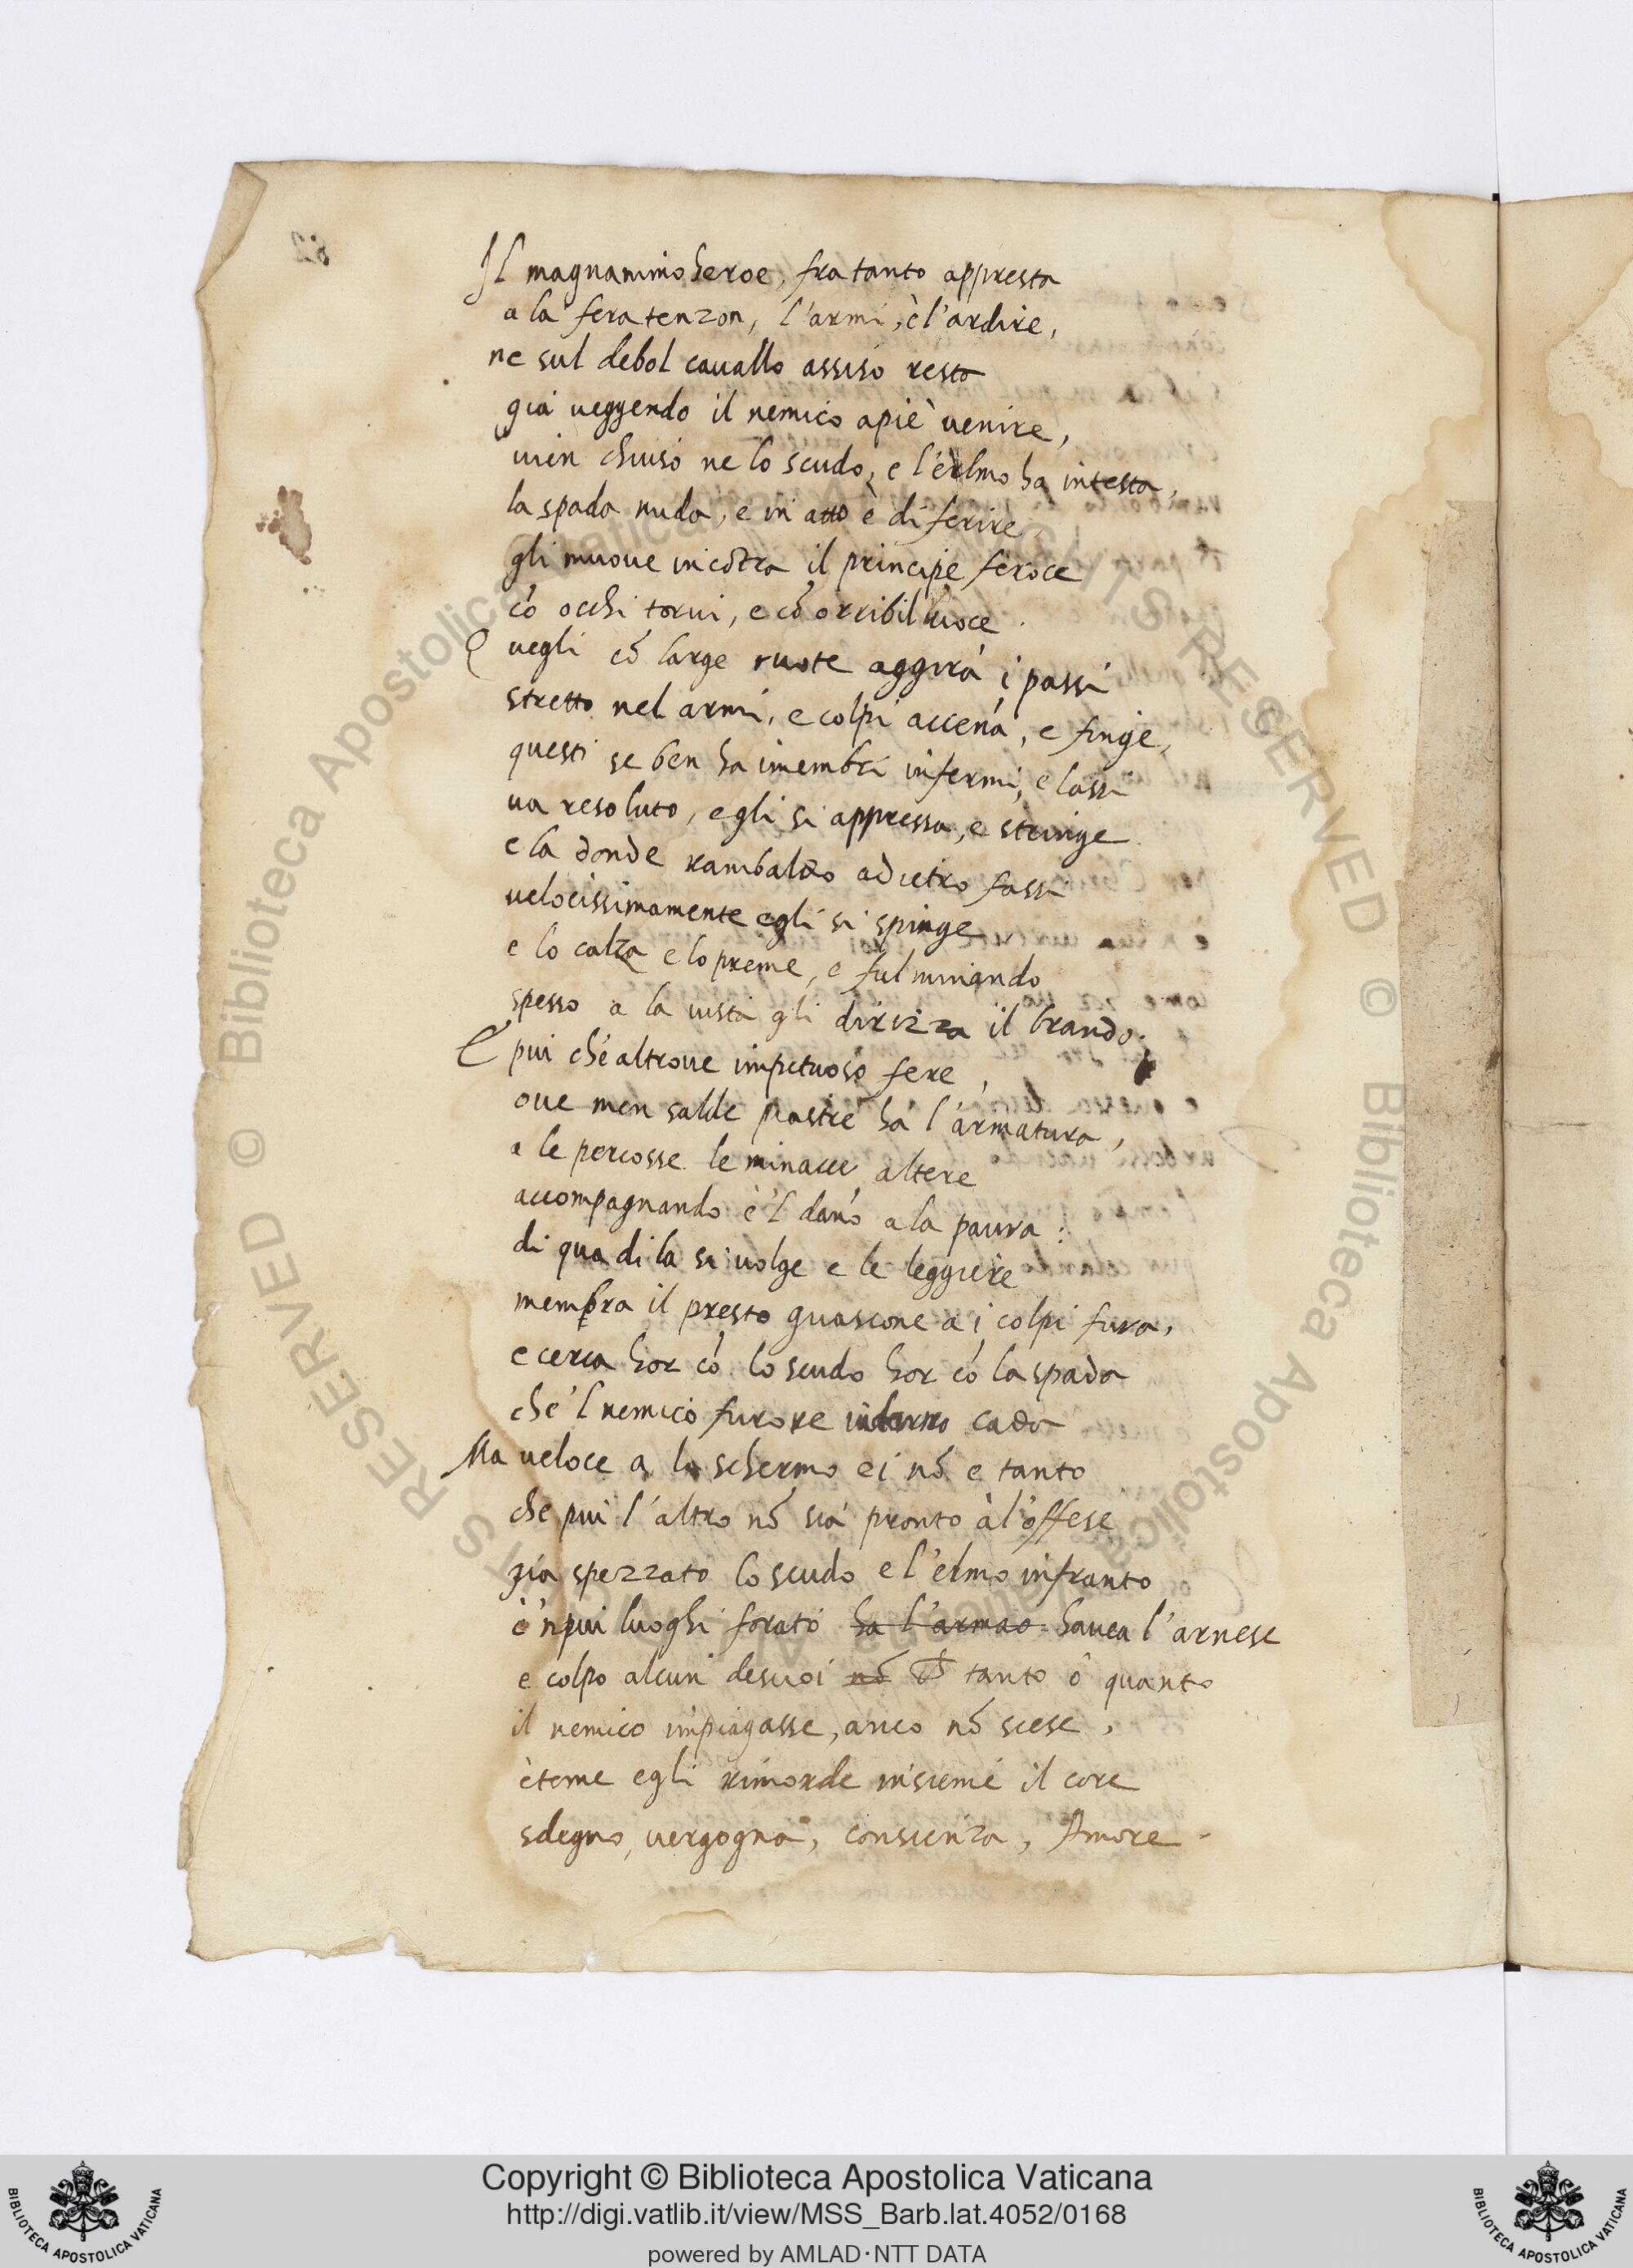 Il magnanimo heroe, fra tanto appresta
a la fera tenzon, l'armi, è l'ardire,
ne sul debol cauallo assiso resta
già ueggendo il nemico apiè uenire,
uien chiuso ne lo scudo, e l'elmo ha in testa,
la spada nuda, e in atto è di ferire
gli muoue incõtra il principe feroce
cõ occhi torui, e cõ orribil uoce.
Quegli cõ large ruote aggira i passi
stretto nel armi, e colpi accenã, e finge,
questi se ben ha i membri infermi, e lassi
ua resoluto, e gli si appressa, e stringe
e la donde rambaldo adietro fassi
uelocissimamente egli si spinge
e lo calza e lo preme, e fulminando
spesso a la uista gli dirizza il brando.
E piu che altroue impetuoso fere,
oue men salde piastre ha l'armatura,
a le percosse le minacce altere
accompagnando e 'l danõ a la paura:
di qua di la si uolge e le leggiere
membra il presto guascone a i colpi fura,
e cerca hor cõ lo scudo hor cõ la spada
che 'l nemico furore indarno cada
Ma ueloce a lo schermo ei nõ e tanto
che piu l'altro nõ sia pronto à l'offese
gia spezzato lo scudo e l'elmo infranto
è 'n piu luoghi forato ha l'armao hauea l'arnese
e colpo alcun de suoi nõ tanto ò quanto
il nemico impiagasse, anco nõ scese,
è teme e gli rimorde insieme il core
sdegno, uergogna, conscienza, Amore.
Copyright © Biblioteca Apostolica Vaticana
http://digi.vatlib.it/view/MSS_Barb.lat.4052/0168
powered by AMLAD·NTT DATA